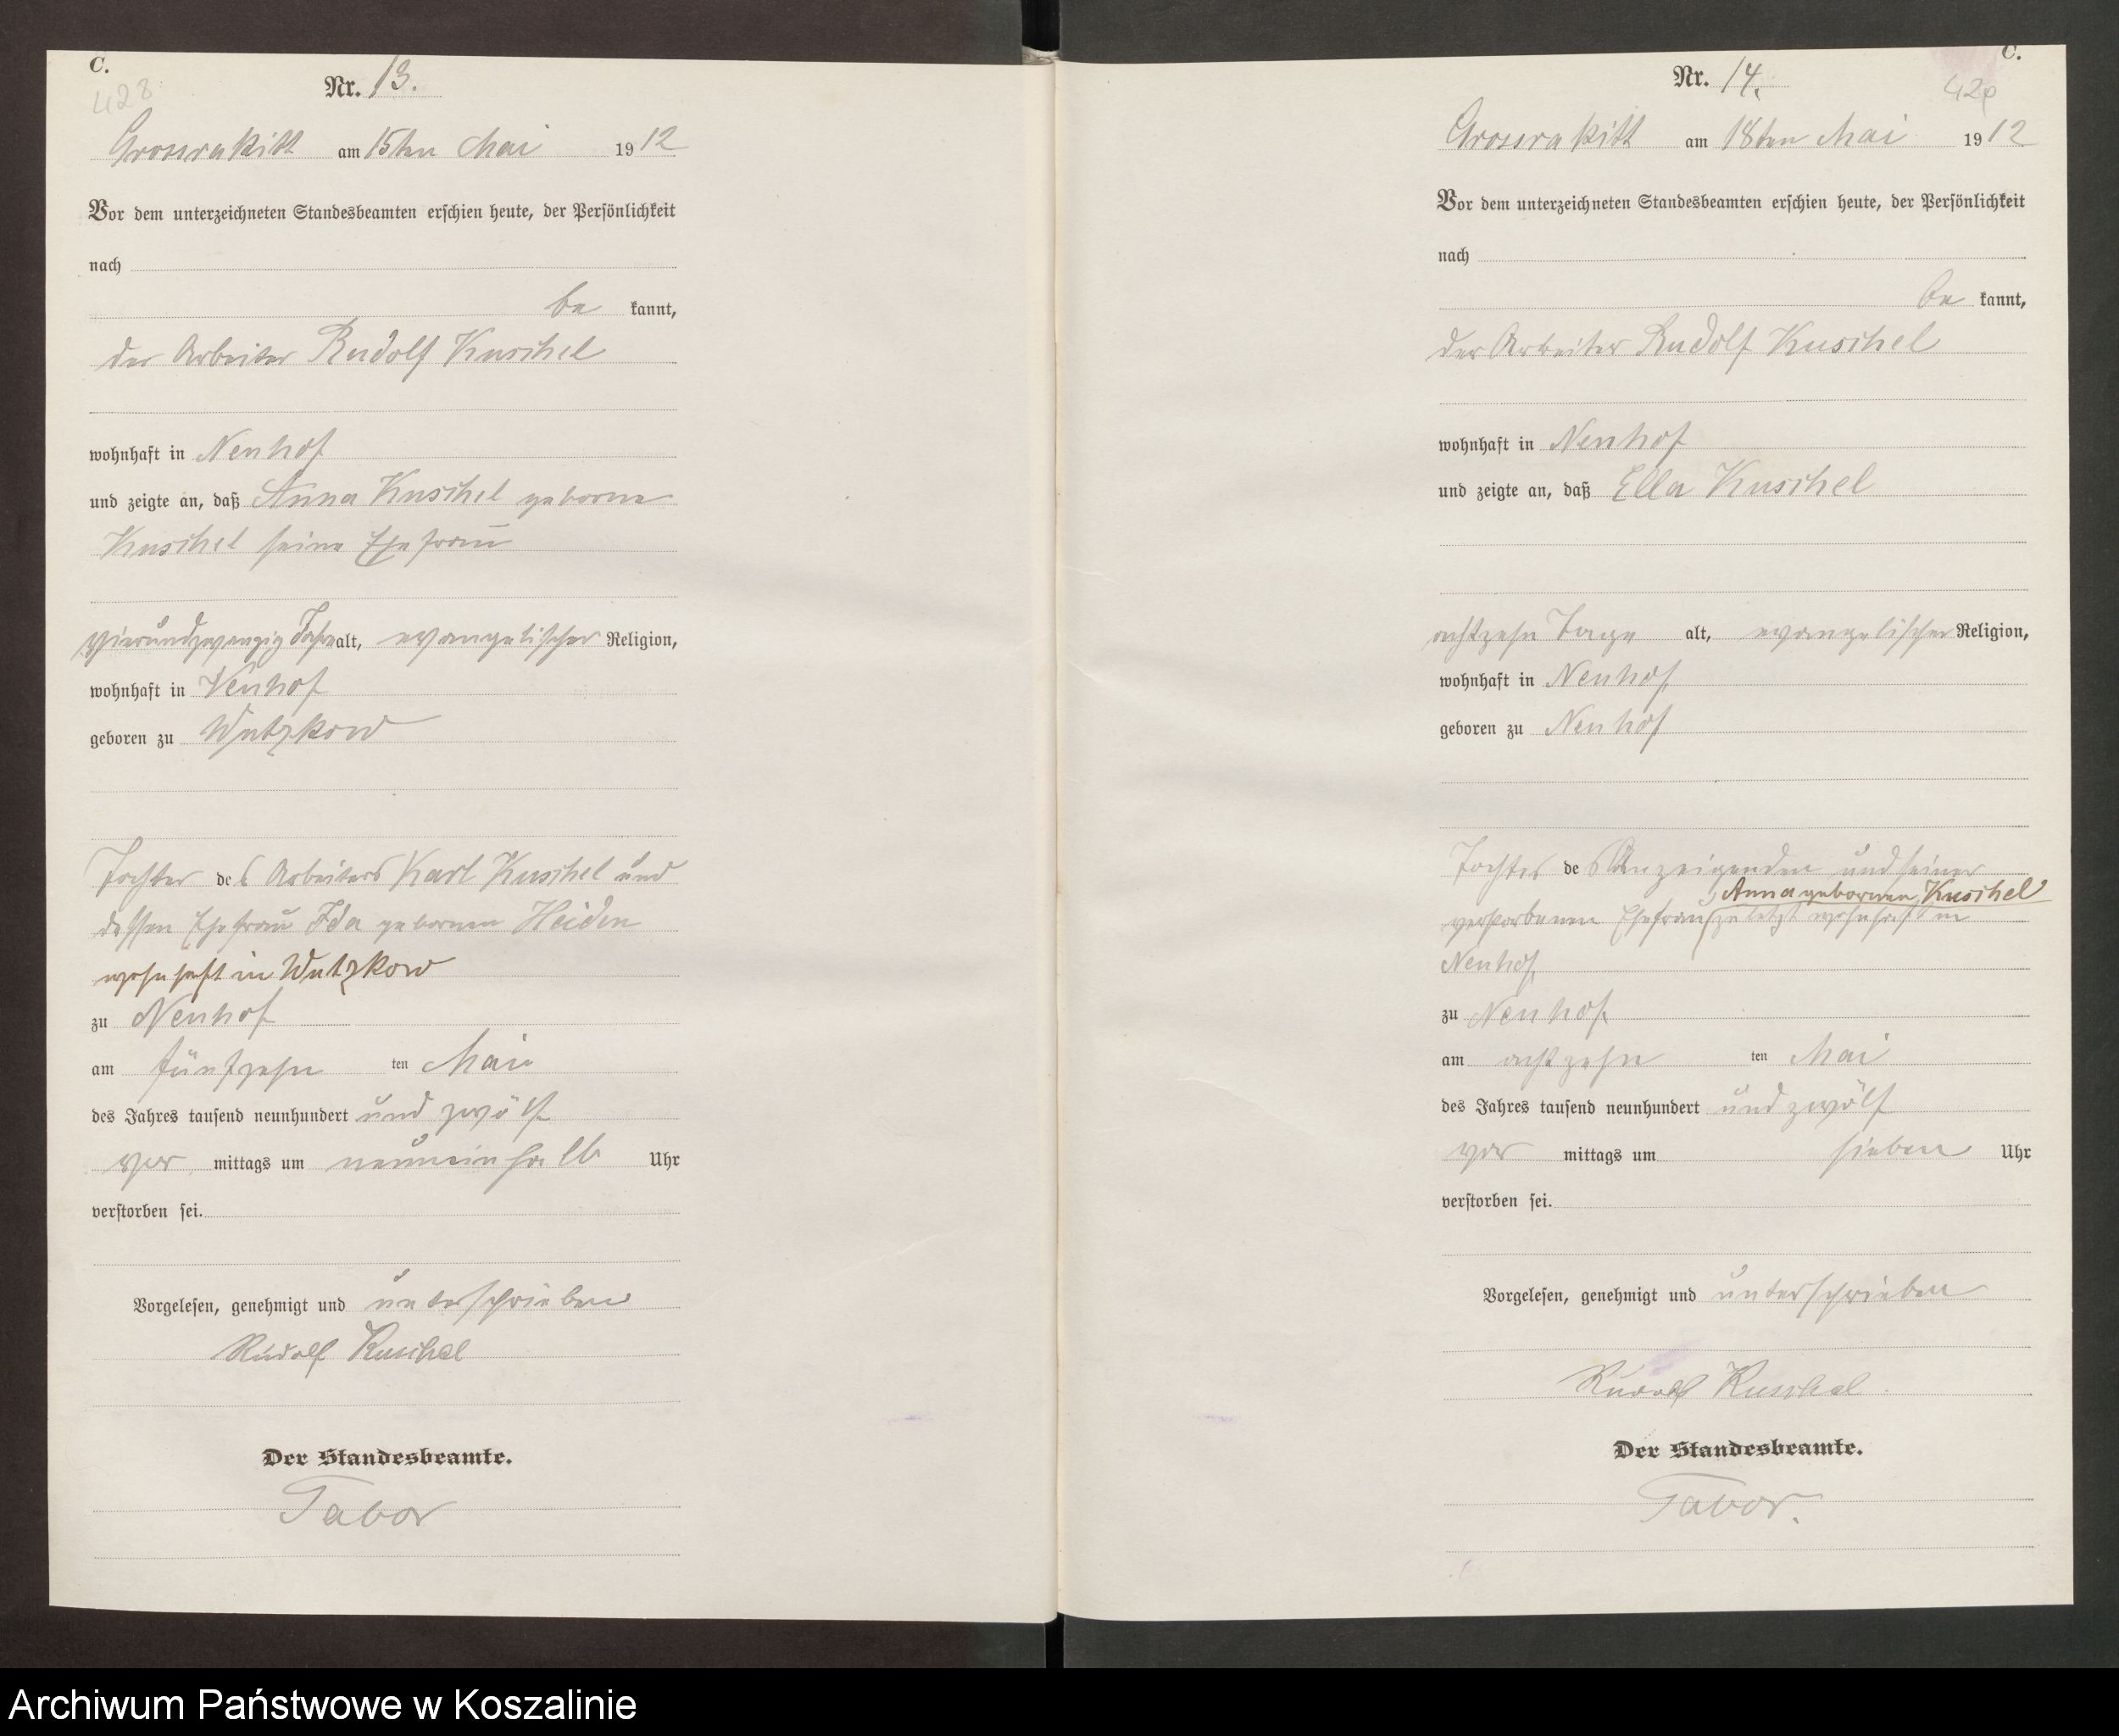 C.
428
Nr. 13.
Grossrakitt am 15ten Mai 1912
Vor dem unterzeichneten Standesbeamten erschien heute, der Persönlichkeit
nach
be kannt,
der Arbeiter Rudolf Kuschel
wohnhaft in Neuhof
und zeigte an, daß Anna Kuschel geborne
Kuschel seine Ehefrau
vierundzwanzig Jahre alt, evangelischer Religion,
wohnhaft in Neuhof
geboren zu Wutzkow
Tochter des Arbeiters Karl Kuschel und
dessen Ehefrau Ida gebornen Heiden
wohnhaft in Wutzkow
zu Neuhof
am fünfzehn ten Mai
des Jahres tausend neunhundert und zwölf
vor mittags um neuneinhalb Uhr
verstorben sei.
Vorgelesen, genehmigt und unterschrieben
Rudolf Kuschel
Der Standesbeamte.
Tabor
C.
429
Nr. 14.
Grossrakitt am 18ten Mai 1912
Vor dem unterzeichneten Standesbeamten erschien heute, der Persönlichkeit
nach
be kannt,
der Arbeiter Rudolf Kuschel
wohnhaft in Neuhof
und zeigte an, daß Ella Kuschel
achtzehn Tage alt, evangelischer Religion,
wohnhaft in Neuhof
geboren zu Neuhof
Tochter des Anzeigenden und seiner
Anna gebornen Kuschel
verstorbenen Ehefrau zuletzt wohnhaft in
Neuhof
zu Neuhof
am achtzehn ten Mai
des Jahres tausend neunhundert und zwölf
vor mittags um sieben Uhr
verstorben sei.
Vorgelesen, genehmigt und unterschrieben
Rudolf Kuschel
Der Standesbeamte.
Tabor.
Archiwum Państwowe w Koszalinie